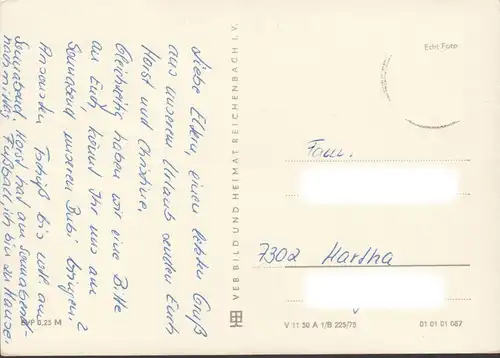 Liebe Eltern, einen letzten Gruß
aus unserem Urlaub senden Euch
Horst und Christine.
Gleichzeitig haben wir eine Bitte
an Euch, könnt Ihr uns am
Sonnabend unseren Bubi bringen?
Ansonsten Tschüß bis am
Sonnabend. Horst hat am Sonnabend-
nachmittag Fußball, ich bin zu Hause.
EVP 0,25 M
VEB BILD UND HEIMAT REICHENBACH I. V.
Echt Foto
Fam.
7302 Hartha
V 11 50 A 1/B 225/75
01 01 01 087